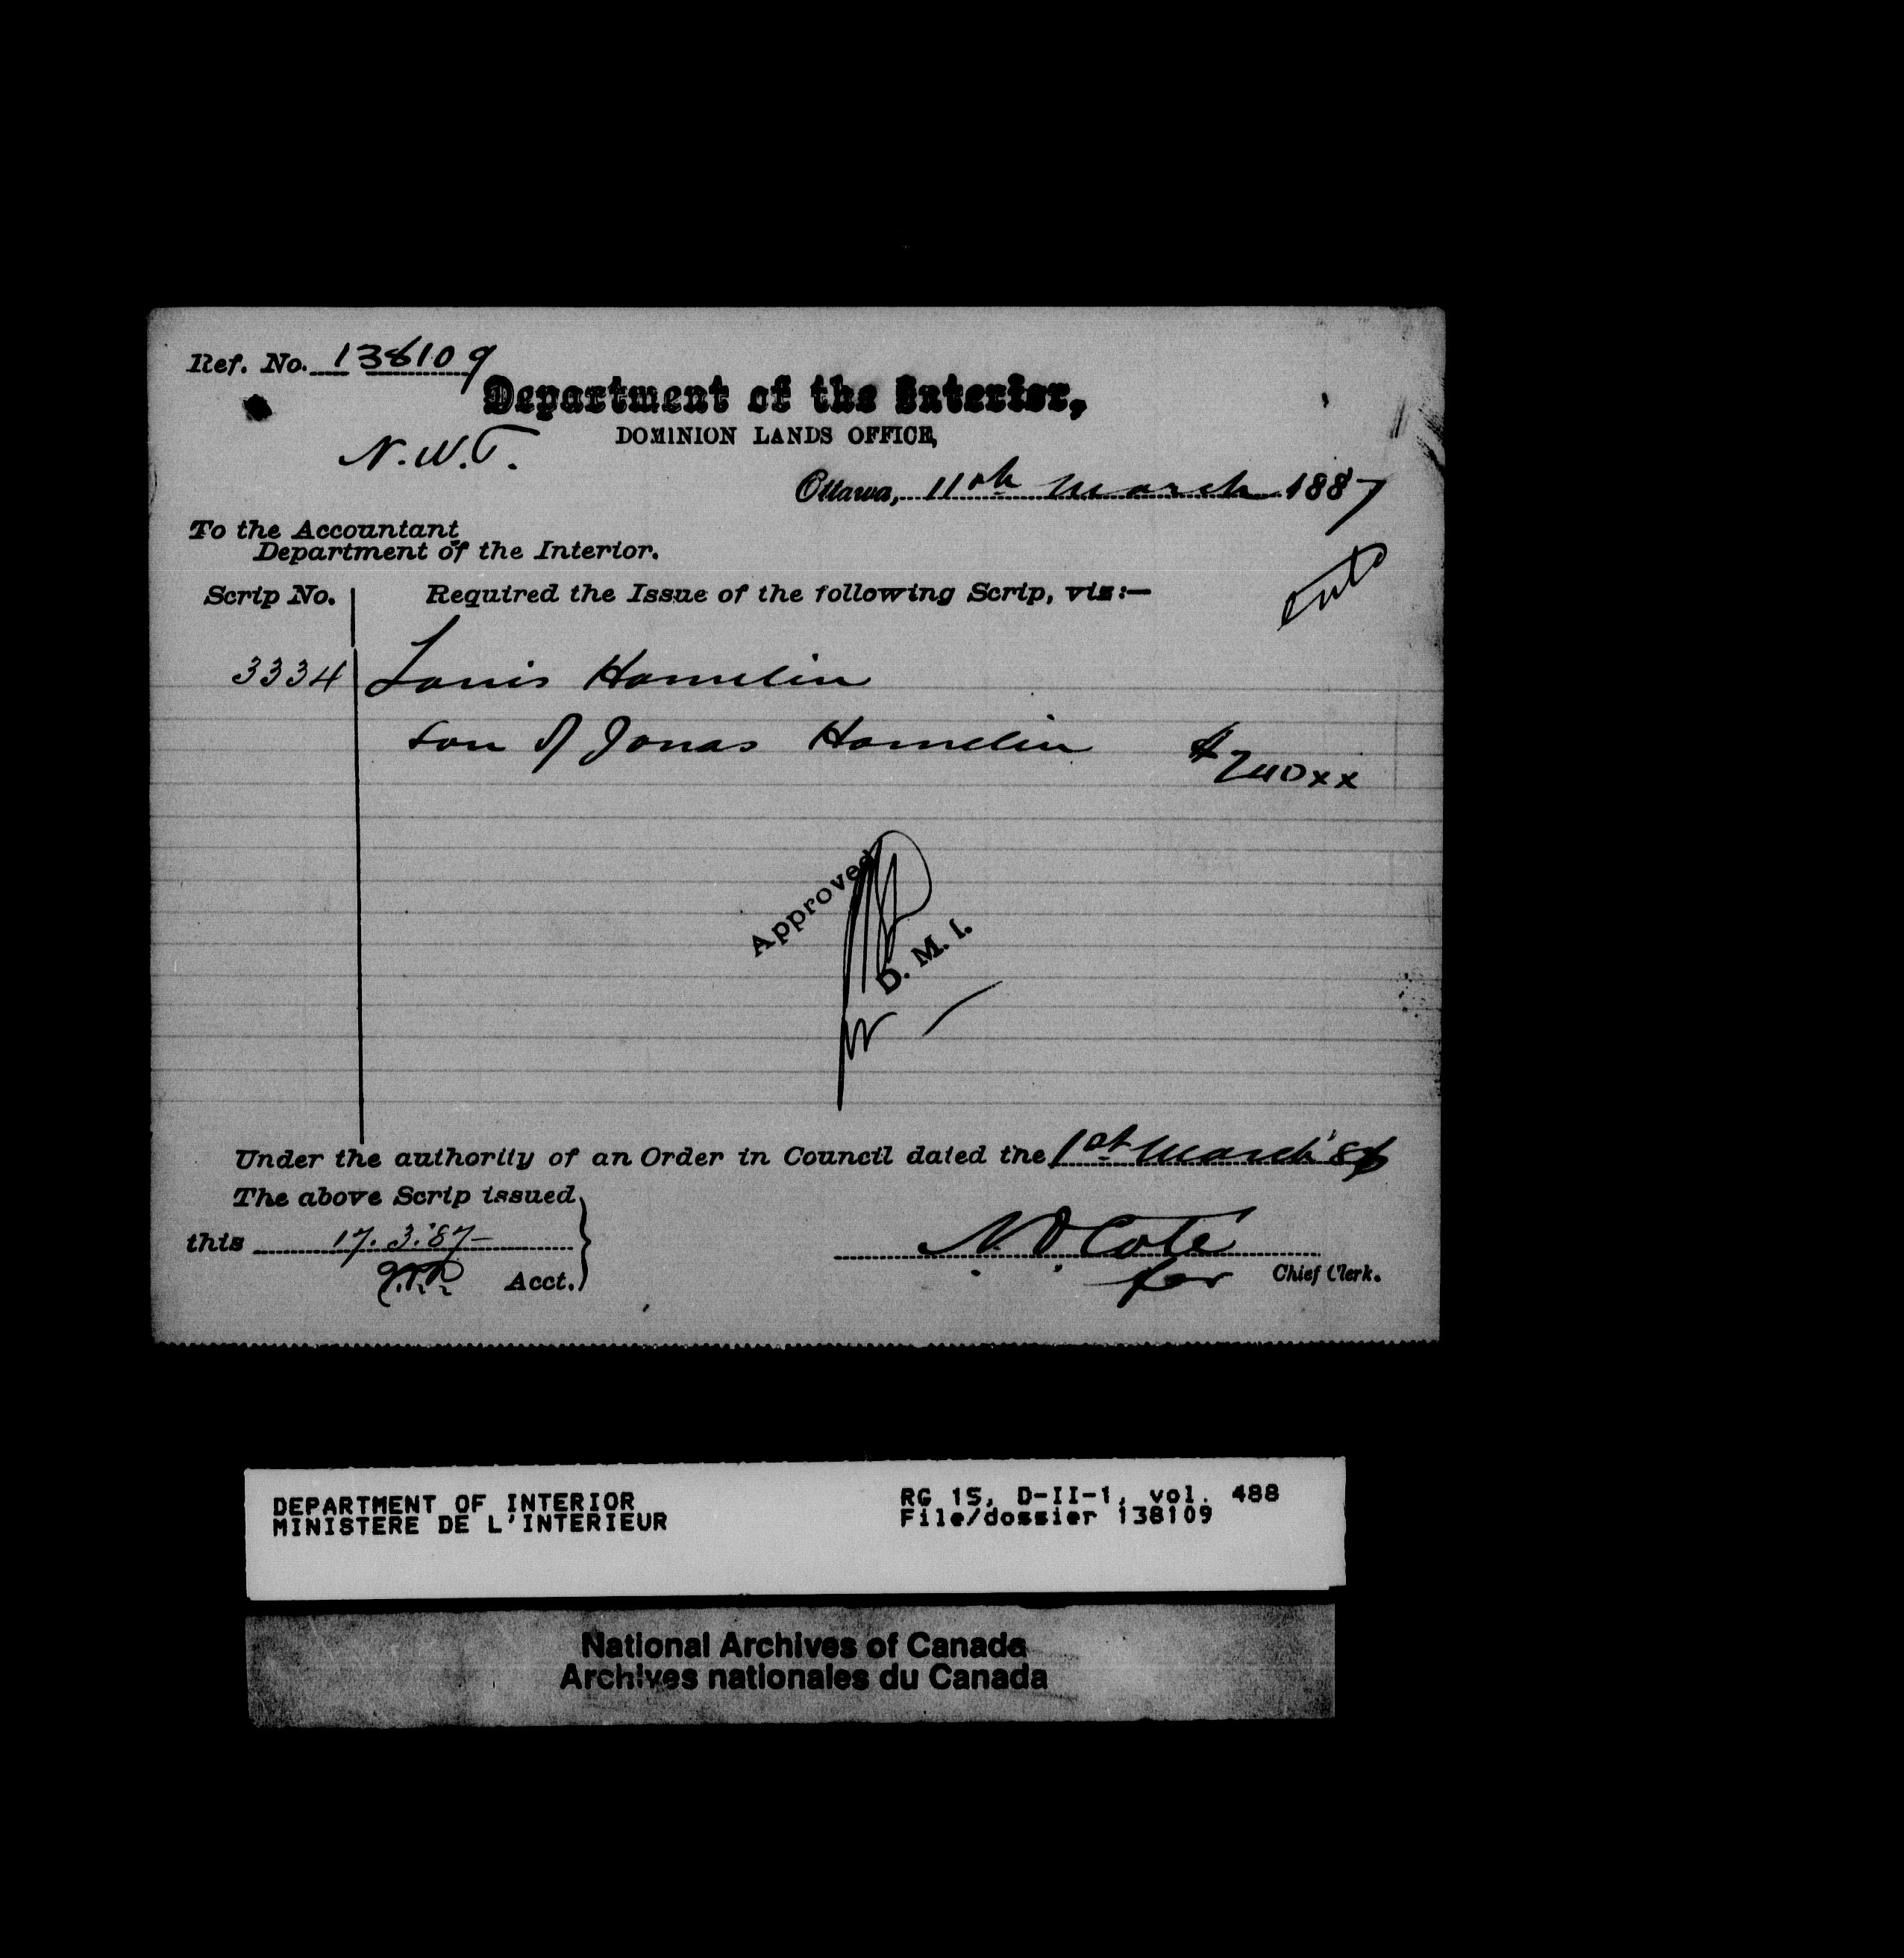 Ref. No. 138109
Department of the Interior,
DOMINION LANDS OFFICE,
N.W.T.
Ottawa, 11th March 1887
To the Accountant
Department of the Interior.
Scrip No. Required the Issue of the following Scrip, viz:—
3334 Louis Hamelin
son of Jonas Hamelin $240xx
Approved
D. M. I.
Under the authority of an Order in Council dated the 1st March
The above Scrip issued
this 17.3.'87—
Acct.
N.O Cote
for Chief Clerk.
DEPARTMENT OF INTERIOR
MINISTERE DE L'INTERIEUR
RG 15, D-II-1, vol. 488
File/dossier 138109
National Archives of Canada
Archives nationales du Canada